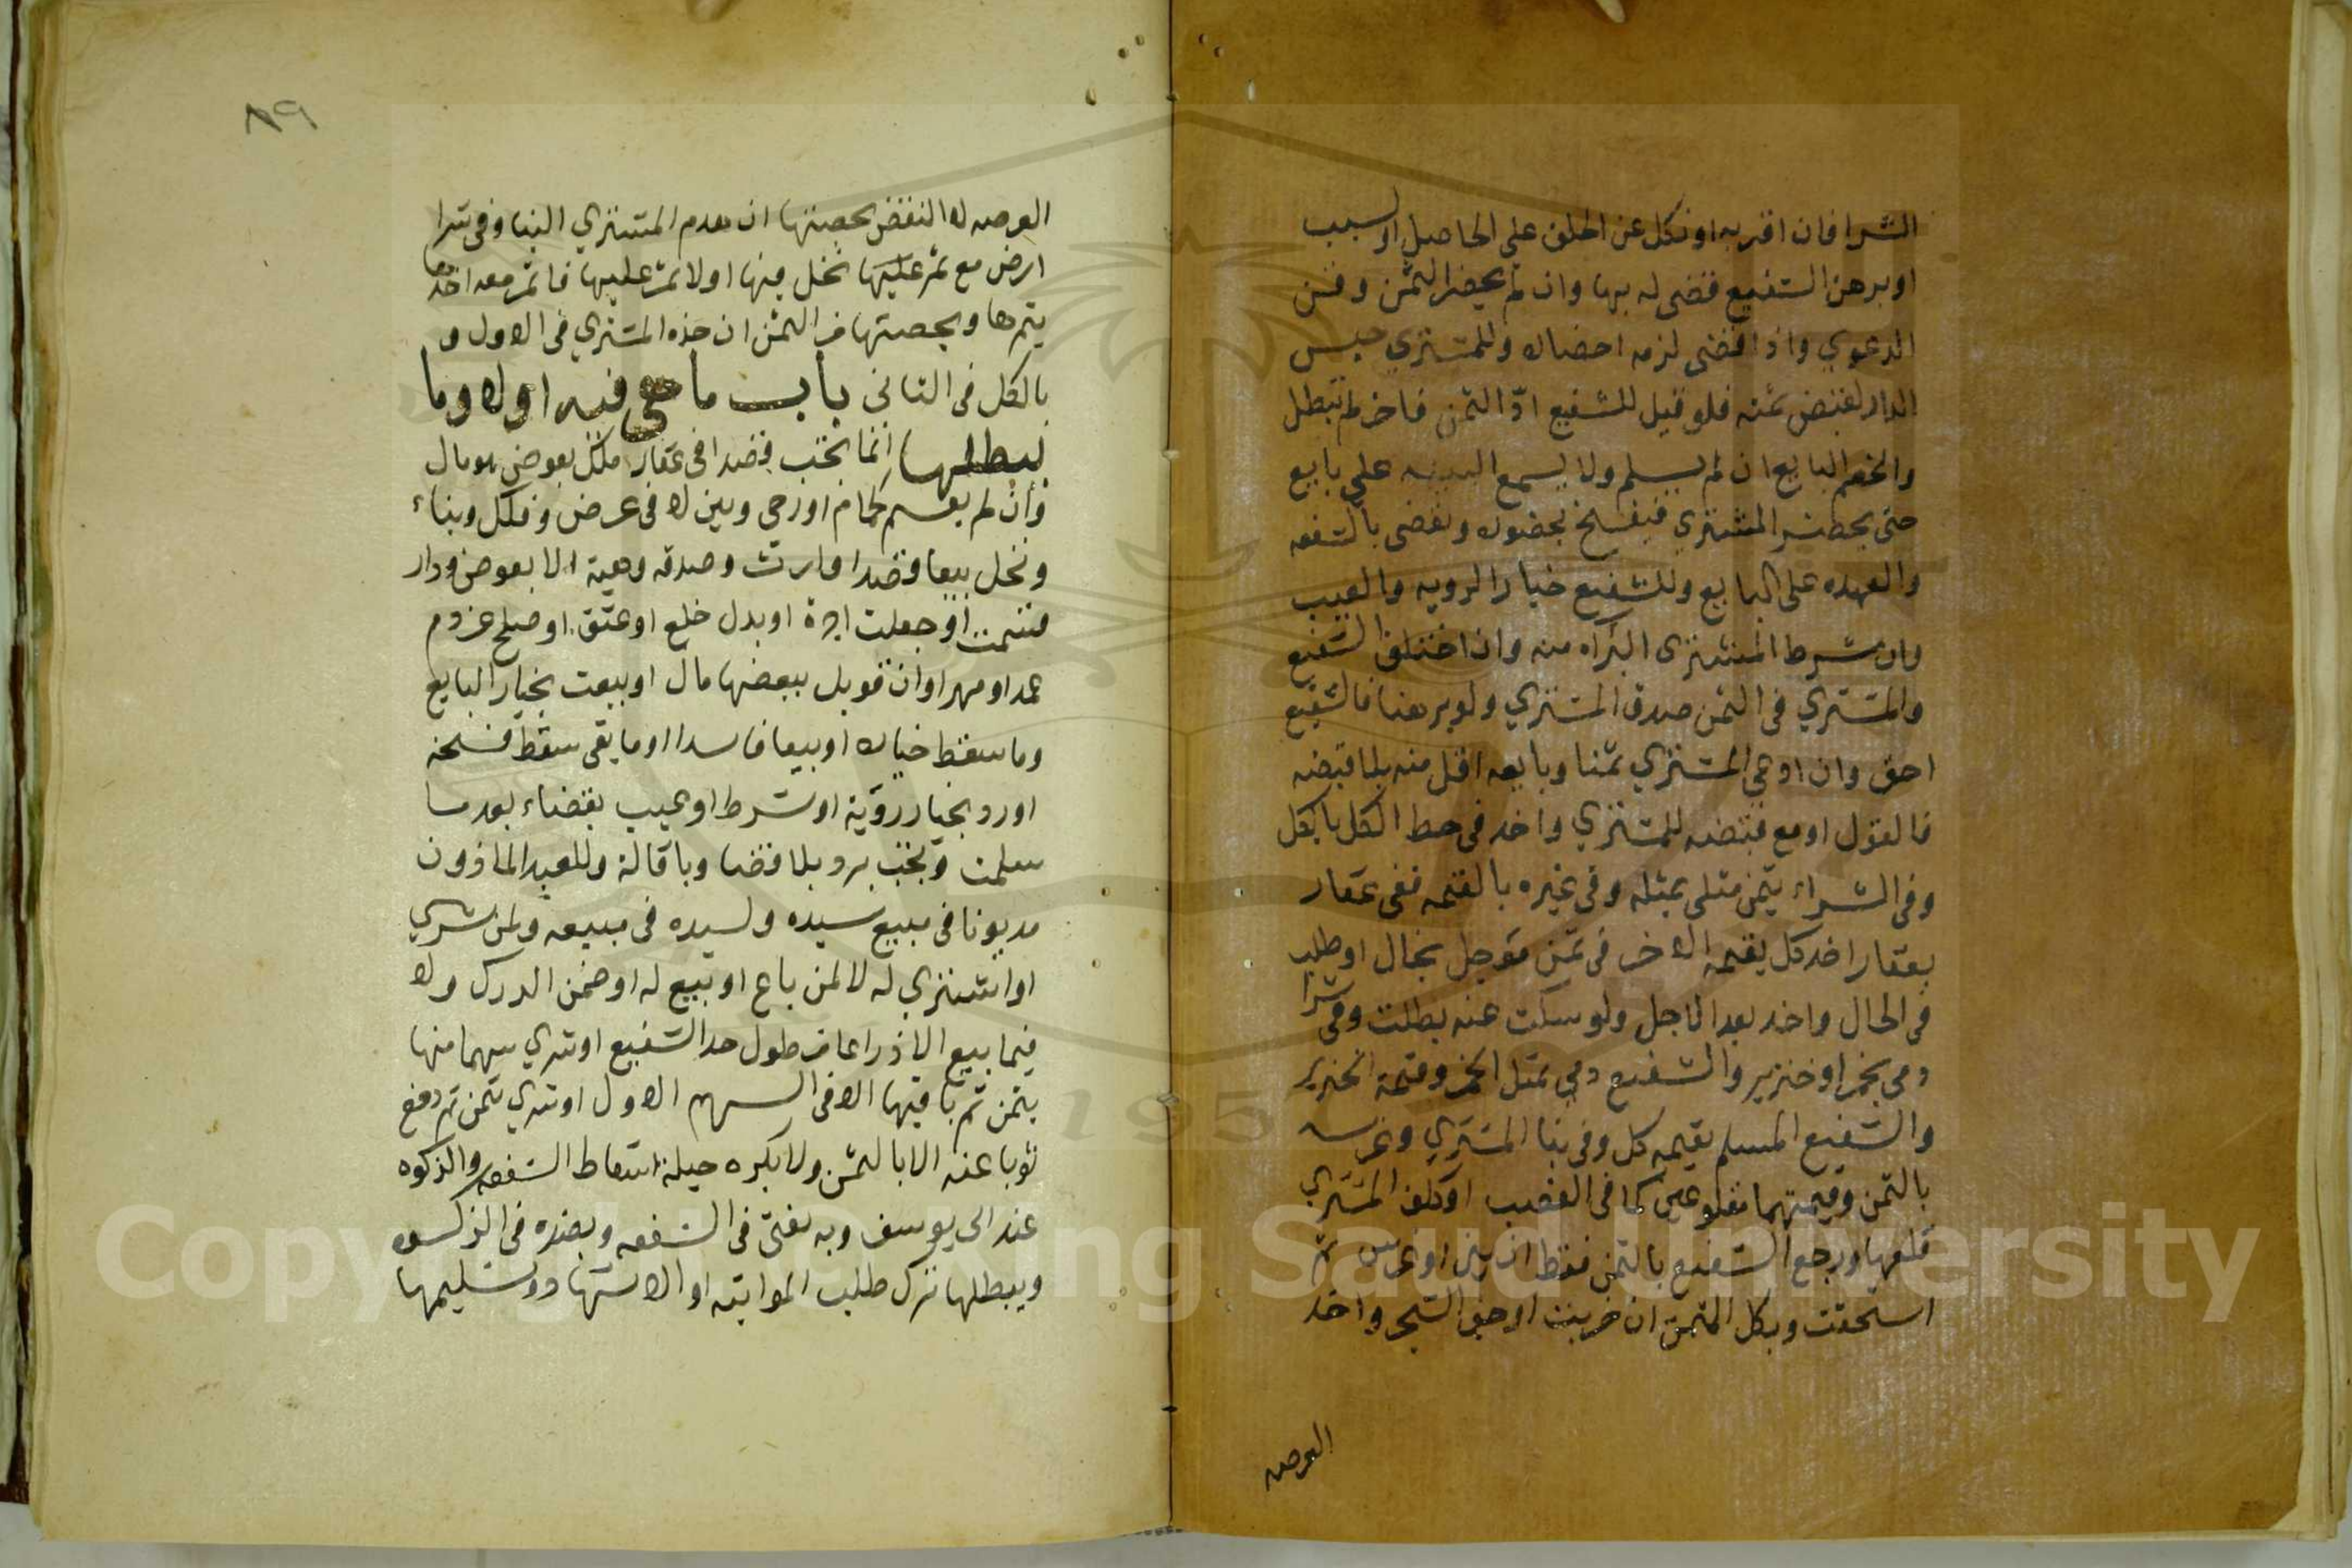 الشرا فان اقر به او نكل عن الحلف على الحاصل او السبب
او برهن الشفيع قضى له بها وان لم يحضر الثمن وقت
الدعوي واذا قضى لزمه احضاره وللمشتري حبس
الدار لقبض ثمنه فلو قيل للشفيع ادّ الثمن فاخر لم تبطل
والخصم البايع ان لم يسلم ولا يسمع البينه على بايع
حتى يحضر المشتري فيفسخ بحضوره ويقضى بالشفعه
والعهده على البايع وللشفيع خيار الرويه والعيب
وان شرط المشترى البراه منه وان اختلف الشفيع
والمشتري في الثمن صدق المشتري ولو برهنا فالشفيع
احق وان ادعى المشتري ثمنا وبايعه اقل منه بلا قبضه
فالقول له ومع قبضه للمشتري واخذ في حط الكل بالكل
وفي الشراء بثمن مثلى بمثله وفي غيره بالقيمه ففي عقار
بعقار اخد كل بقيمه الاخر في ثمن موجل بحال او طلب
في الحال واخد بعد الاجل ولو سكت عنه بطلت وفي شرا
دمي بخمر او خنزير والشفيع دمي بمثل الخمر وقيمة الخنزير
والشفيع المسلم بقيمه كل وفي بنا المشتري وغرسه
بالثمن وقيمتهما مقلوعين كما في الغصب او كلف المشتري
قلعها ورجع الشفيع بالثمن فقط ان بنى او غرس ثم
استحقت وبكل الثمن ان خربت او جف الشجر واخد
العرصه
٨٩
العرصه لا النقض بحصتها ان هدم المشتري البنا وفي شرا
ارض مع ثمر عليها نخل فيها او لا ثمر عليها فاثمر معه اخذ
بثمرها وبحصتها من الثمن ان جذه المشتري في الاول و
بالكل في الثاني باب ما هي فيه اولا وما
يبطلها انما تجب قصدا في عقار ملك بعوض هو مال
وان لم يقسم كحمام او رحي وبين لا في عرض وفلك وبناء
ونخل بيعا قصدا وارث وصدقه وهبة الا بعوض ودار
قسمت او جعلت اجرة او بدل خلع او عتق او صلح عن دم
عمد او مهر او ان قوبل ببعضها مال او بيعت بخيار البايع
وما سقط خياره او بيعا فاسدا او ما بقى سقط فسخه
او رد بخيار رؤية او شرط او عيب بقضاء بعد ما
سلمت وتجب برد بلا قضا وباقالة وللعبد الماذون
مديونا في مبيع سيده ولسيده في مبيعه ولمن شري
او اشتري له لا لمن باع او بيع له او ضمن الدرك ولا
فيما بيع الا ذراعا من طول حد الشفيع او شري سهما منها
بثمن ثم باقيها الا في السهم الاول او شري بثمن ثم دفع
ثوبا عنه الا بالثمن ولا يكره حيلة اسقاط الشفعه والزكوه
عند ابي يوسف وبه يفتى في الشفعه وبضده في الزكوه
ويبطلها ترك طلب المواثبه او الاشهاد وتسليمها
Copyright © King Saud University
1957